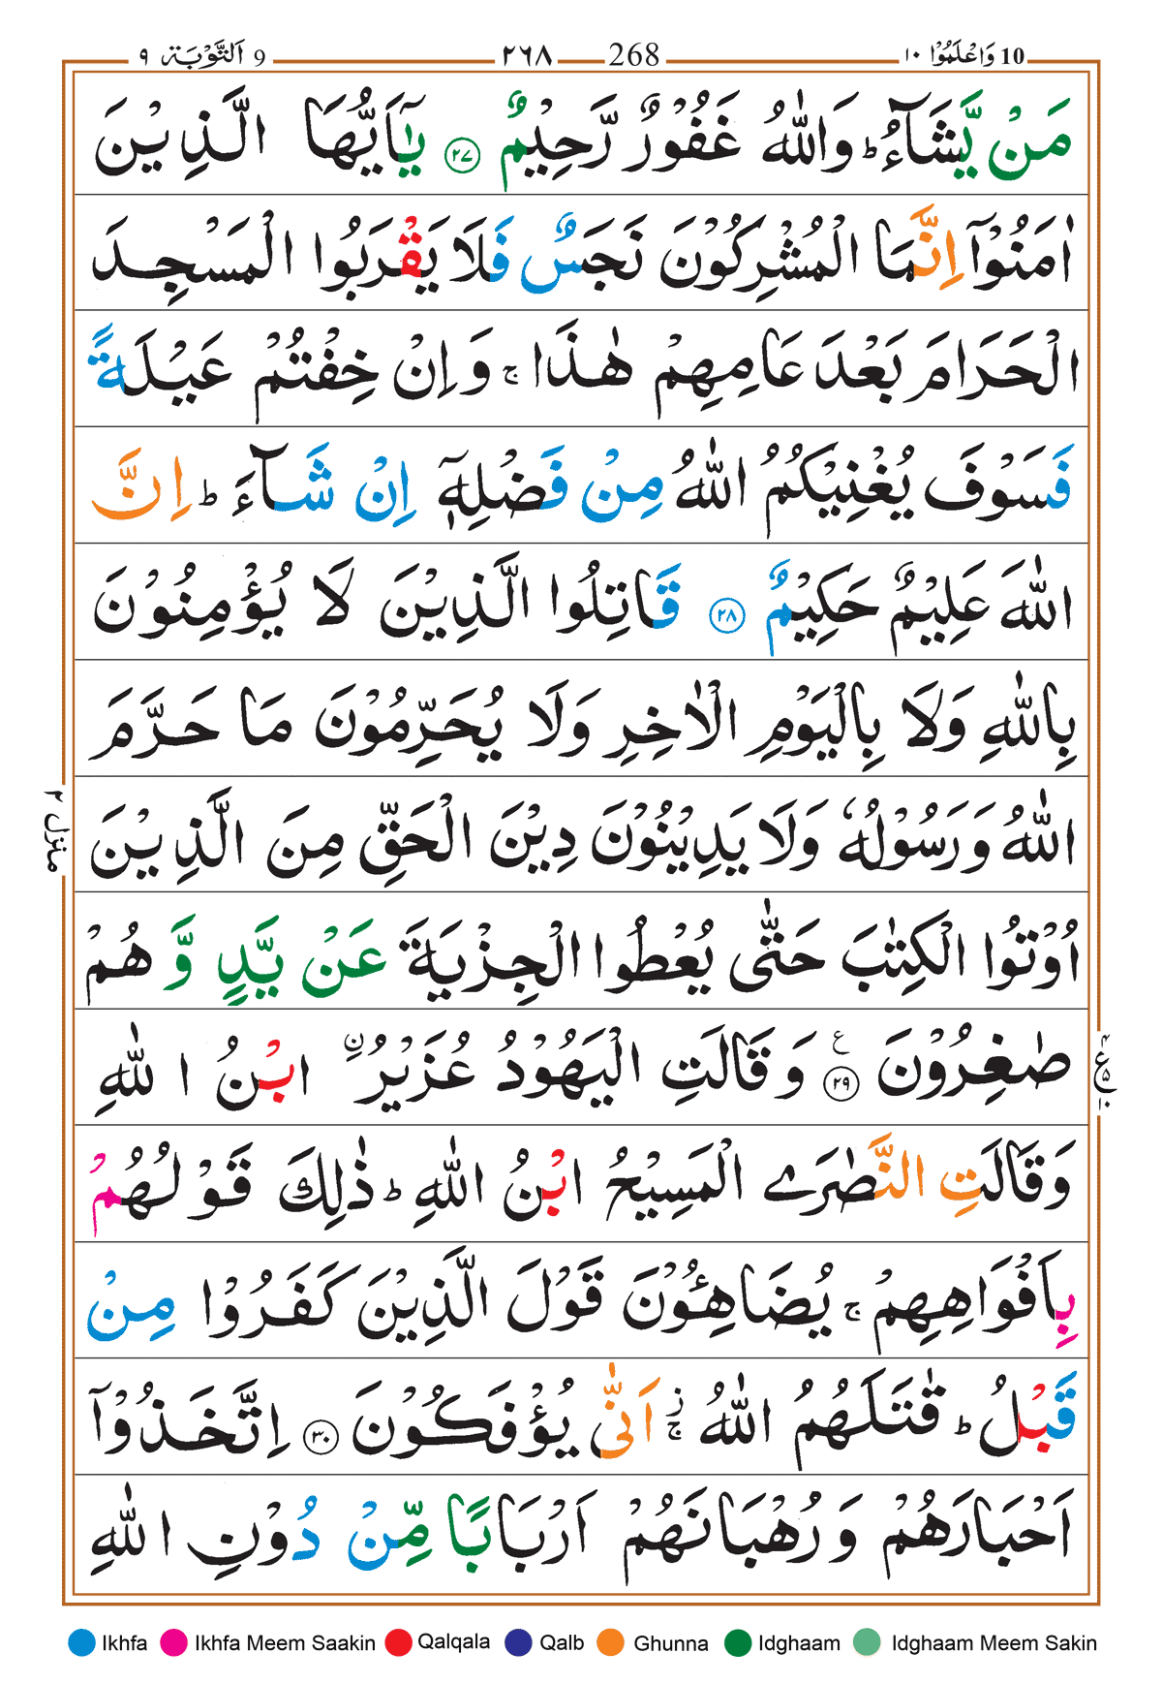 10 وَاعْلَمُوْا ١٠ 268 ٢٦٨ 9 اَلتَّوْبَة ٩
مَنْ يَّشَآءُ ؕ وَاللّٰهُ غَفُوْرٌ رَّحِيْمٌ ﴿۲۷﴾ يٰۤاَيُّهَا الَّذِيْنَ
اٰمَنُوْۤا اِنَّمَا الْمُشْرِكُوْنَ نَجَسٌ فَلَا يَقْرَبُوا الْمَسْجِدَ
الْحَرَامَ بَعْدَ عَامِهِمْ هٰذَا ۚ وَاِنْ خِفْتُمْ عَيْلَةً
فَسَوْفَ يُغْنِيْكُمُ اللّٰهُ مِنْ فَضْلِهٖۤ اِنْ شَآءَ ؕ اِنَّ
اللّٰهَ عَلِيْمٌ حَكِيْمٌ ﴿۲۸﴾ قَاتِلُوا الَّذِيْنَ لَا يُؤْمِنُوْنَ
بِاللّٰهِ وَلَا بِالْيَوْمِ الْاٰخِرِ وَلَا يُحَرِّمُوْنَ مَا حَرَّمَ
اللّٰهُ وَرَسُوْلُهٗ وَلَا يَدِيْنُوْنَ دِيْنَ الْحَقِّ مِنَ الَّذِيْنَ
اُوْتُوا الْكِتٰبَ حَتّٰى يُعْطُوا الْجِزْيَةَ عَنْ يَّدٍ وَّهُمْ
صٰغِرُوْنَ ﴿۲۹﴾ ع وَقَالَتِ الْيَهُوْدُ عُزَيْرُ ۨ ابْنُ اللّٰهِ
وَقَالَتِ النَّصٰرَے الْمَسِيْحُ ابْنُ اللّٰهِ ؕ ذٰلِكَ قَوْلُهُمْ
بِاَفْوَاهِهِمْ ۚ يُضَاهِـُٔوْنَ قَوْلَ الَّذِيْنَ كَفَرُوْا مِنْ
قَبْلُ ؕ قٰتَلَهُمُ اللّٰهُ ۚ ز اَنّٰى يُؤْفَكُوْنَ ﴿۳۰﴾ اِتَّخَذُوْۤا
اَحْبَارَهُمْ وَرُهْبَانَهُمْ اَرْبَابًا مِّنْ دُوْنِ اللّٰهِ
منزل ۲
Ikhfa Ikhfa Meem Saakin Qalqala Qalb Ghunna Idghaam Idghaam Meem Sakin